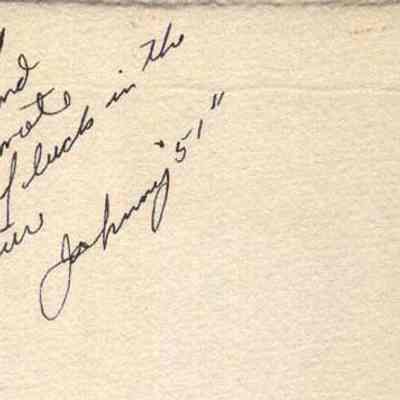 nd
mate
f luck in the
Johnny "51"